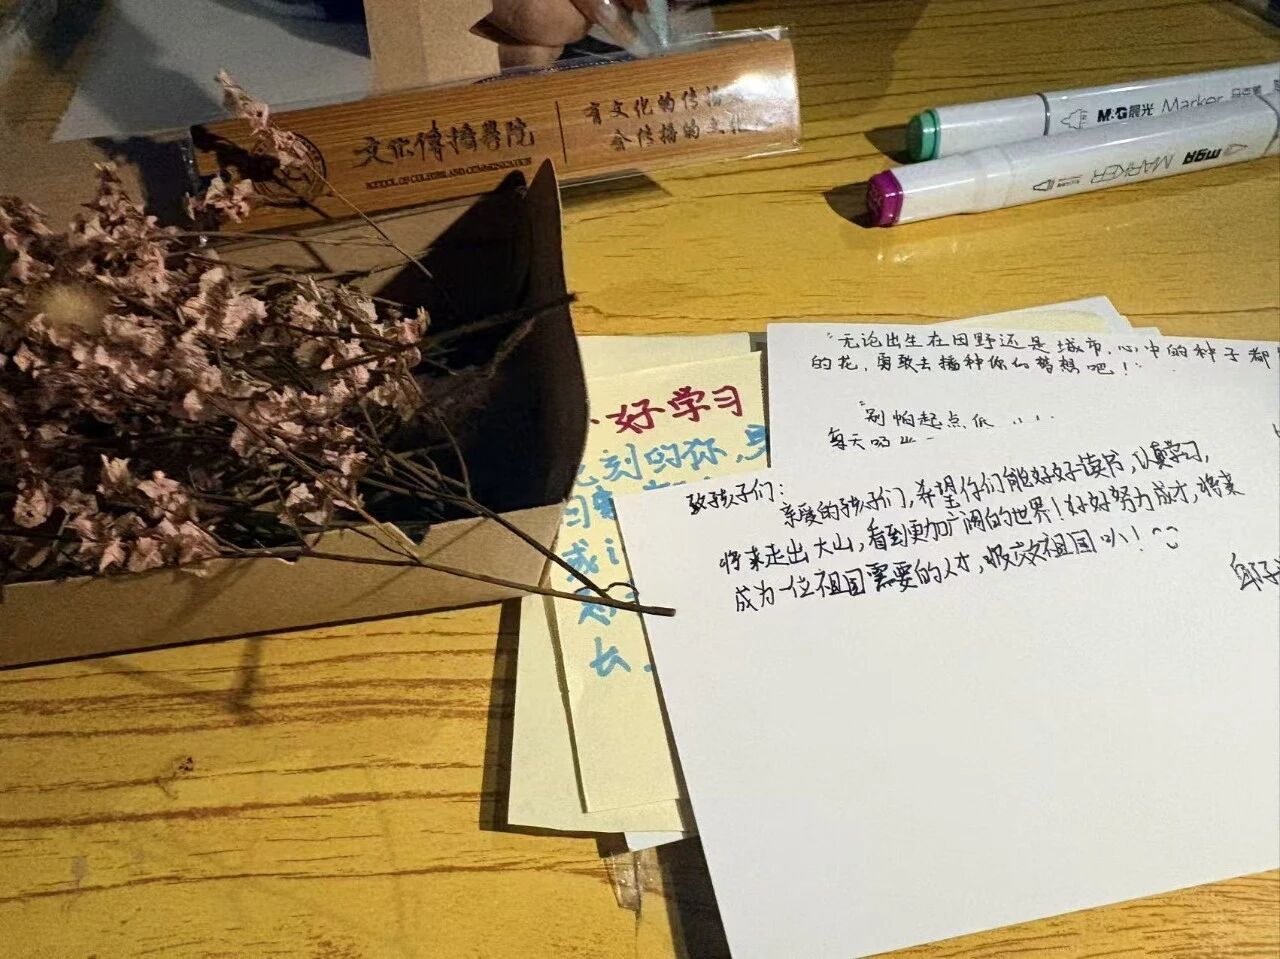 文化传播学院
SCHOOL OF CULTURE AND COMMUNICATION
有文化的传播
会传播的文化
M&G晨光 Marker
M&G MARKER
"无论出生在田野还是城市,心中的种子都
的花,勇敢去播种你的梦想吧!"
"别怕起点低
每天
好学习
刻的你,
习
成
长.
致孩子们:
亲爱的孩子们,希望你们能好好读书,认真学习,
将来走出大山,看到更加广阔的世界!好好努力成才,将来
成为一位祖国需要的人才,报效祖国叭!